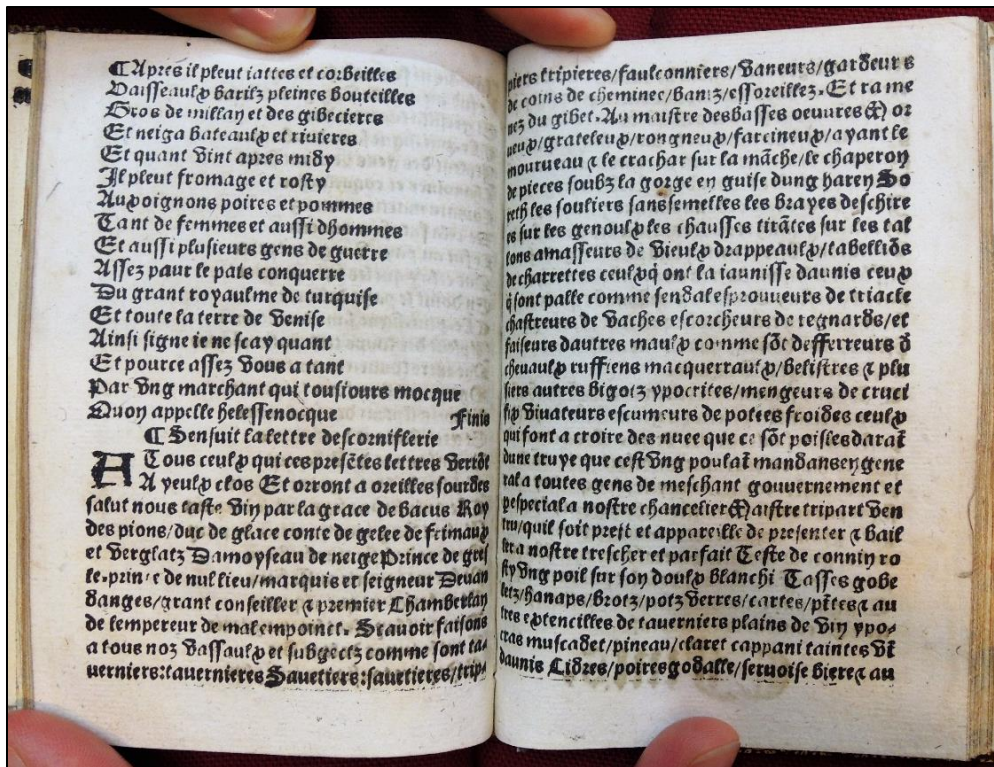 ¶Apres il pleut iattes et corbeilles
Vaisseaulx barilz pleines bouteilles
Gros de millan et des gibecieres
Et neiga bateaulx et riuieres
Et quant vint apres midy
Il pleut fromage et rosty
Aux oignons poires et pommes
Tant de femmes et aussi dhommes
Et aussi plusieurs gens de guerre
Assez paur le pais conquerre
Du grant royaulme de turquise
Et toute la terre de Venise
Ainsi signe ie ne scay quant
Et pource assez vous a tant
Par vng marchant qui tousiours mocque
Quon appelle helessenocque Finis
¶Sensuit la lettre descorniflerie
A Tous ceulx qui ces presētes lettres verrōt
A yeulx clos Et orront a oreilles sourdes
salut nous taste vin par la grace de bacus Roy
des pions/duc de glace conte de gelee de frimaux
et verglatz Damoyseau de neige Prince de gresle
le.prince de nul lieu/marquis et seigneur Deuan
danges/grant conseiller ⁊ premier Chamberlay
de lempereur de mal empoinct. Scauoir faisons
a tous noz vassaulx et subgectz comme sont ta-
uerniers:tauernieres Sauetiers:sauetieres/trip-
piers tripieres/faulconniers/vaneurs/gardeurs
de coins de cheminee/baniz/essoreillez.Et rame
nez du gibet.Au maistre des basses oeuures or
ueux/grateleux/rongneux/farcineux/ayant le
mourueau ⁊ le crachar sur la māche/le chaperon
de pieces soubz la gorge en guise dung haren So
reth les souliers sans semelles les brayes deschire
es sur les genoulx les chausses tirātes sur les tal
lons amasseurs de vieulx drappeaulx/tabelliōs
de charrettes ceulx q̄ ont la iaunisse daunis ceux
q̄ sont palle comme sendal esprouueurs de triacle
chastreurs de vaches escorcheurs de regnards/et
faiseurs dautres maulx comme sōt defferreurs d̄
cheuaulx ruffiens macquerraulx/belistres ⁊ plu
siers autres bigotz ypocrites/mengeurs de cruci
fix viuateurs escumeurs de potees froides ceulx
qui font a croire des nuee que ce sōt poisles darāt
dune truye que cest vng poulat mandans en gene
ral a toutes gens de meschant gouuernement et
pespecial a nostre chancelier Maistre tripart ven
tru/quil soit prest et appareille de presenter ⁊ bail
ler a nostre trescher et parfait Teste de connin ro
sty vng poil sur son doulx blanchi Tasses gobe
letz/hanaps/brotz/potz verres/cartes/pītes ⁊ au
tres extencilles de tauerniers plains de vin ypo-
cras muscadet/pineau/claret cappani taintes vī
daunis Cidres/poires godalle/seruoise biere ⁊ au